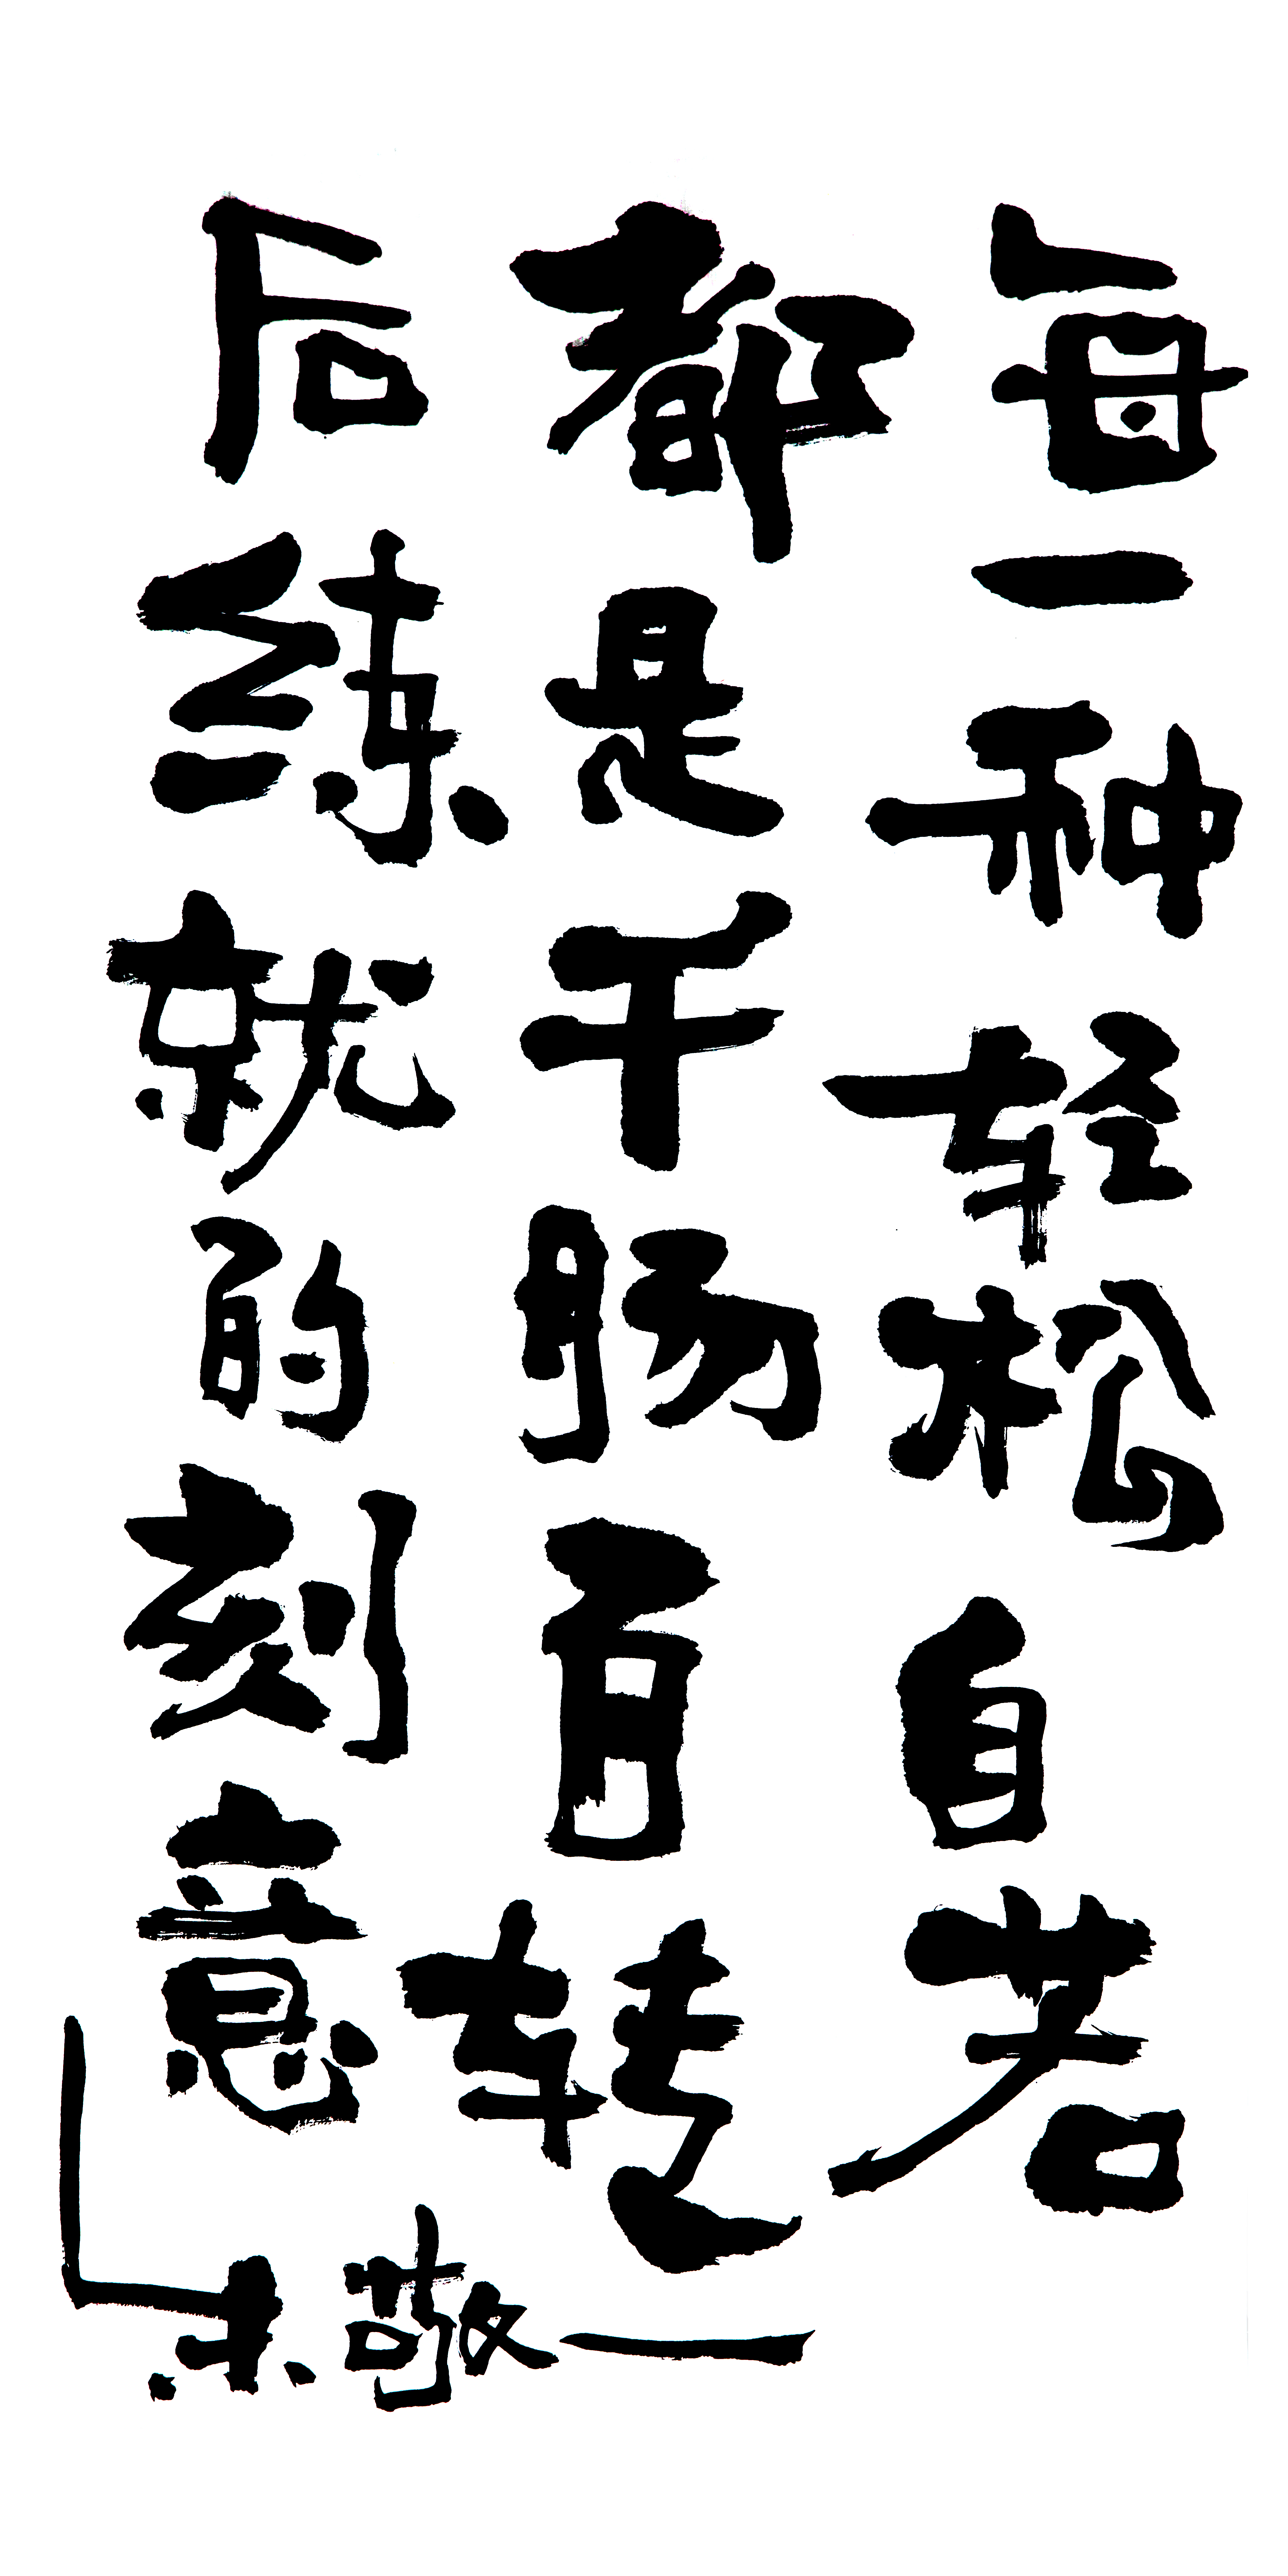 每一种轻松自若
都是千肠百转
后练就的刻意
朱敬一